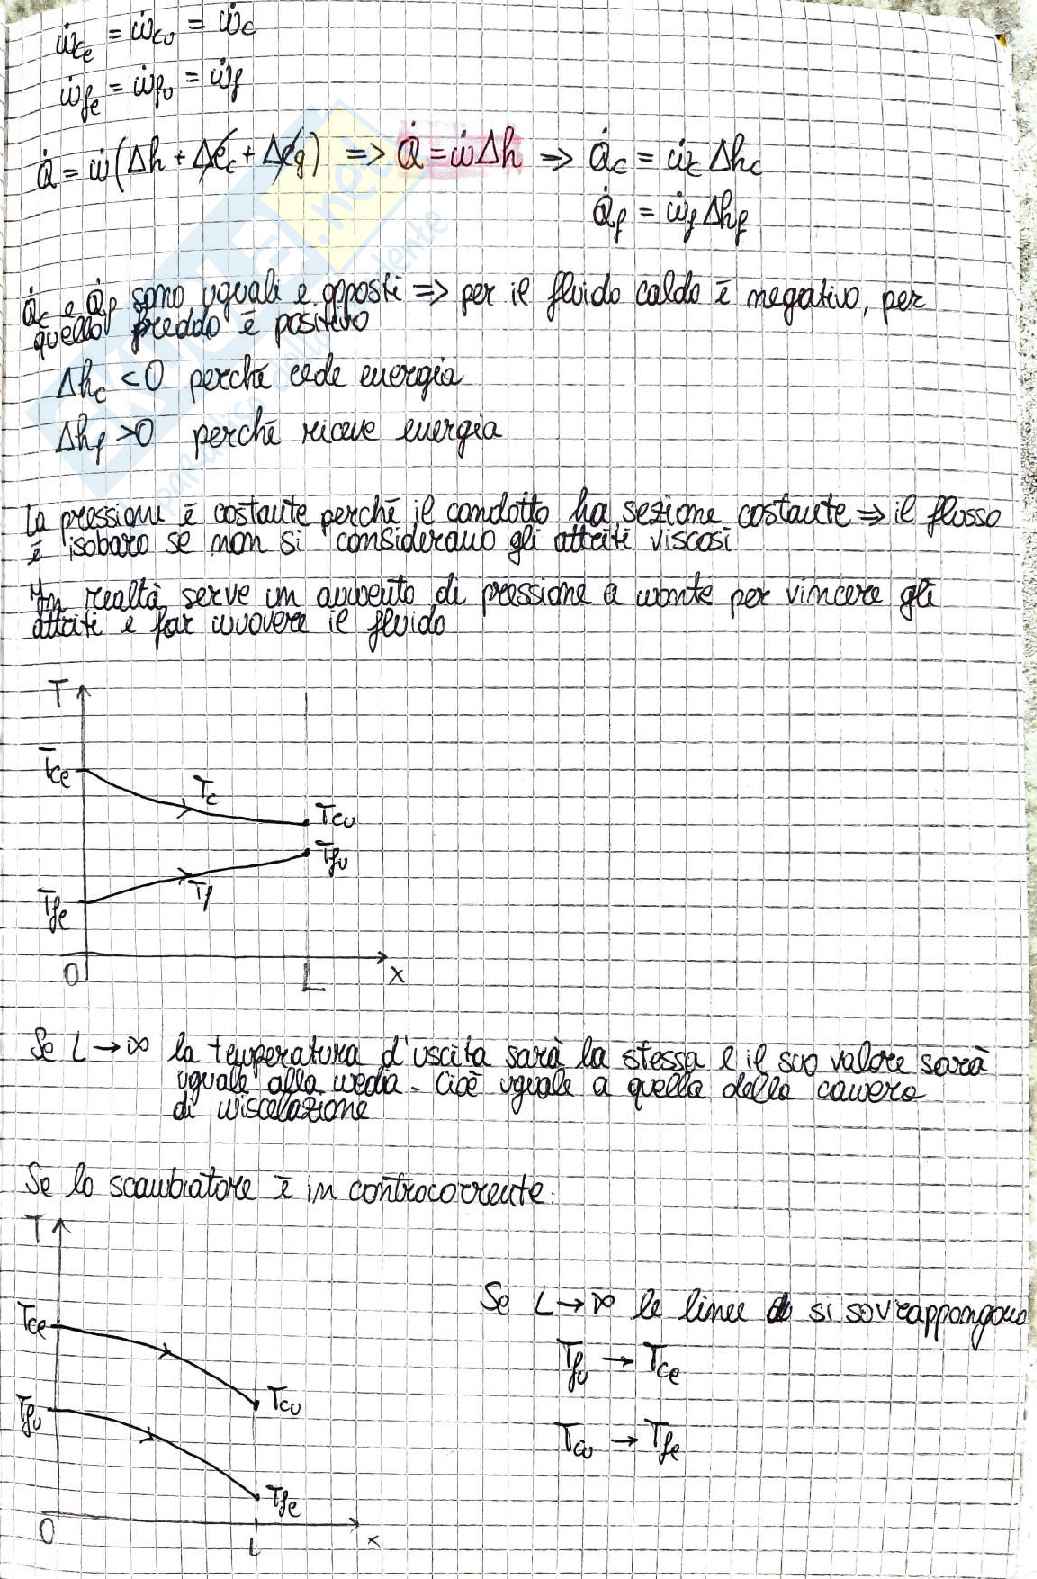 ẇce = ẇcu = ẇc
ẇfe = ẇfu = ẇf
Q̇ = ẇ(Δh + Δec + Δeg) => Q̇ = ẇΔh => Q̇c = ẇc Δhc
Q̇f = ẇf Δhf
Q̇c e Q̇f sono uguali e opposti => per il fluido caldo è negativo, per
quello freddo è positivo
Δhc <0 perché cede energia
Δhf >0 perché riceve energia
La pressione è costante perché il condotto ha sezione costante => il flusso
è isobaro se non si considerano gli attriti viscosi
In realtà serve un aumento di pressione a monte per vincere gli
attriti e far muovere il fluido
T
Tce
Tc
Tcu
Tfu
Tf
Tfe
0 L x
Se L → ∞ la temperatura d'uscita sarà la stessa e il suo valore sarà
uguale alla media. Cioè uguale a quella della camera
di miscelazione
Se lo scambiatore è in controcorrente.
T
Se L → ∞ le linee si sovrappongono
Tce
Tfu → Tce
Tcu
Tfu
Tcu → Tfe
Tfe
0 L x